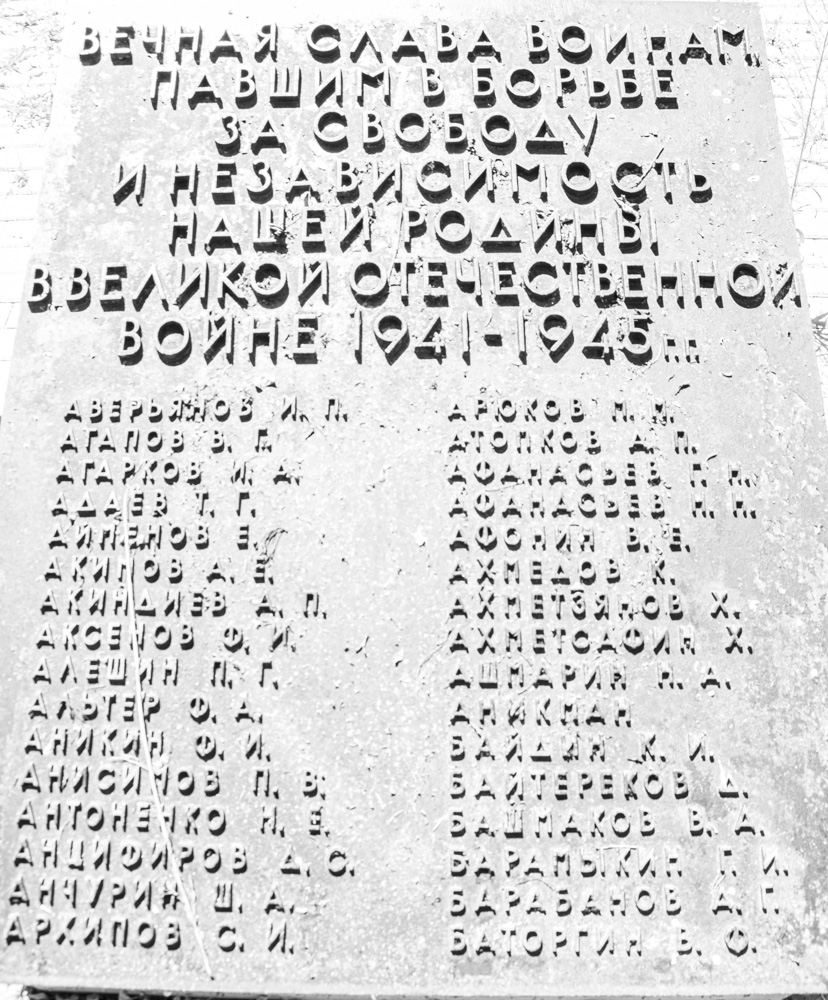 ВЕЧНАЯ СЛАВА ВОИНАМ,
ПАВШИМ В БОРЬБЕ
ЗА СВОБОДУ
И НЕЗАВИСИМОСТЬ
НАШЕЙ РОДИНЫ
В ВЕЛИКОЙ ОТЕЧЕСТВЕННОЙ
ВОЙНЕ 1941-1945г.г.
АВЕРЬЯНОВ И. П.
АГАПОВ В. Г.
АГАРКОВ И. А.
АДАЕВ Т. Г.
АЙМЕНОВ Е.
АКИМОВ А. Е.
АКИНДИЕВ А. П.
АКСЕНОВ Ф. И.
АЛЕШИН П. Г.
АЛЬТЕР Ф. А.
АНИКИН Ф. И.
АНИСИМОВ П. В.
АНТОНЕНКО Н. Е.
АНЦИФИРОВ А. С.
АНЧУРИН Ш. А.
АРХИПОВ С. И.
АРЮКОВ М. М.
АТОПКОВ А. П.
АФАНАСЬЕВ Г. Н.
АФАНАСЬЕВ Н. Н.
АФОНИН В. Е.
АХМЕДОВ К.
АХМЕТЗЯНОВ Х.
АХМЕТСАФИН Х.
АШМАРИН Н. А.
АНИКМАН
БАЙДИН К. И.
БАЙТЕРЕКОВ Д.
БАШМАКОВ В. А.
БАРАМЫКИН Г. И.
БАРАБАНОВ А. Г.
БАТОРГИН В. Ф.